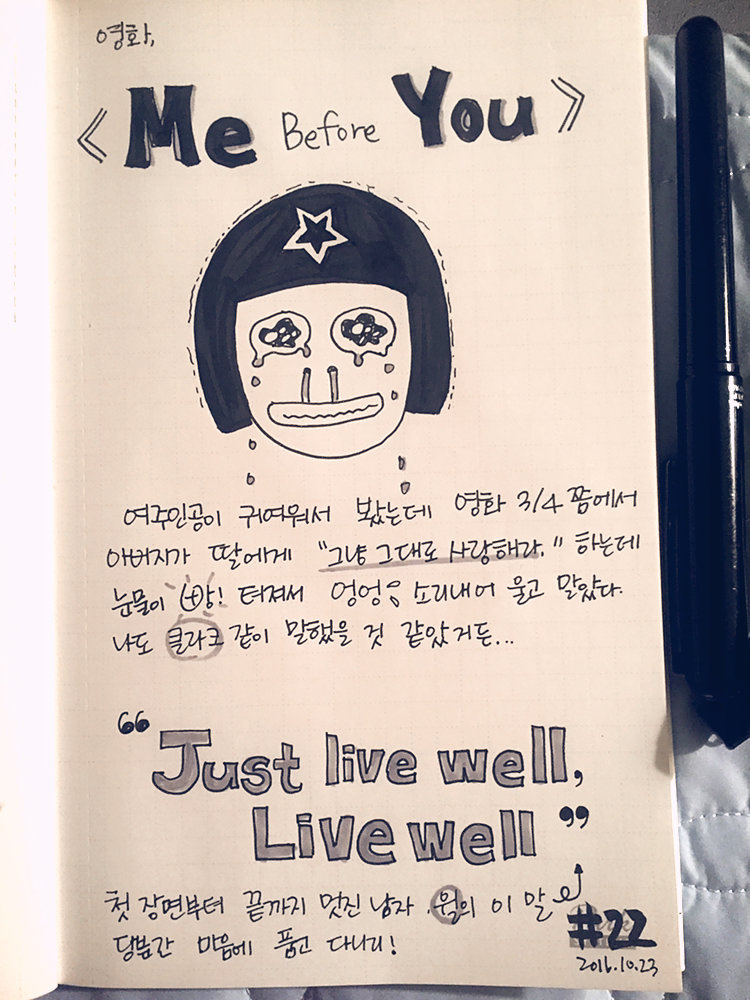 영화,
《 Me Before You 》
여주인공이 귀여워서 봤는데 영화 3/4쯤에서
아버지가 딸에게 "그냥 그대로 사랑해라." 하는데
눈물이 빵! 터져서 엉엉 소리내어 울고 말았다.
나도 클라크 같이 말했을 것 같았거든...
“ Just live well,
Live well ”
첫 장면부터 끝까지 멋진 남자. 윌의 이 말
당분간 마음에 품고 다니리!
#22
2016.10.23